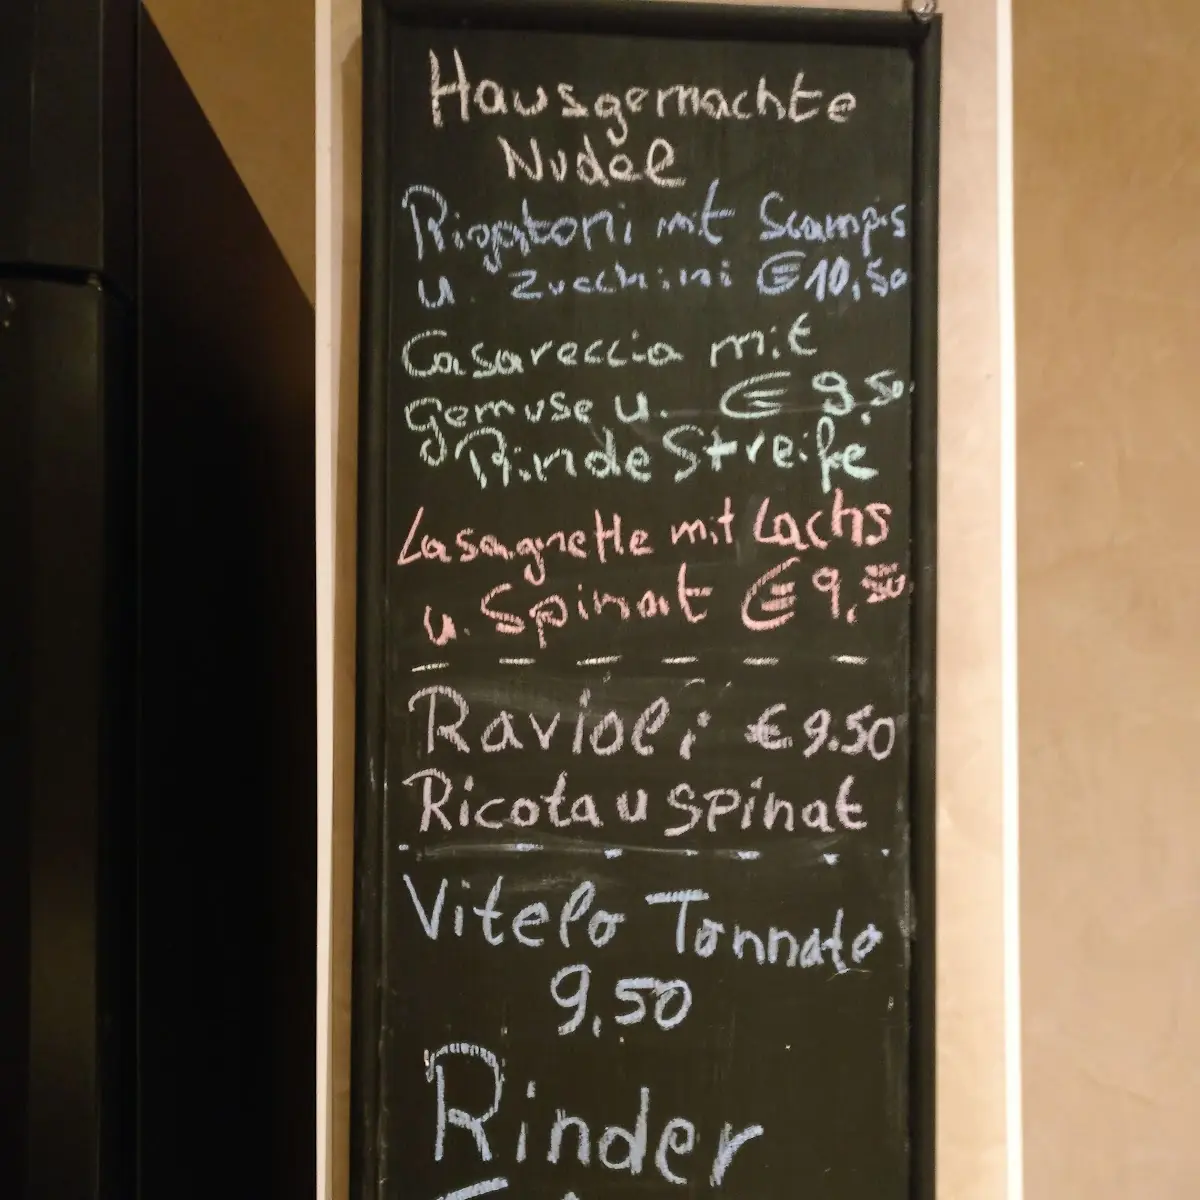 Hausgemachte
Nudel
Rigatoni mit Scampis
u. Zucchini € 10,50
Casareccia mit
gemuse u. € 9,50
Rinde Streife
Lasagnette mit Lachs
u. Spinat € 9,50
Ravioli € 9.50
Ricota u Spinat
Vitelo Tonnato
9,50
Rinder